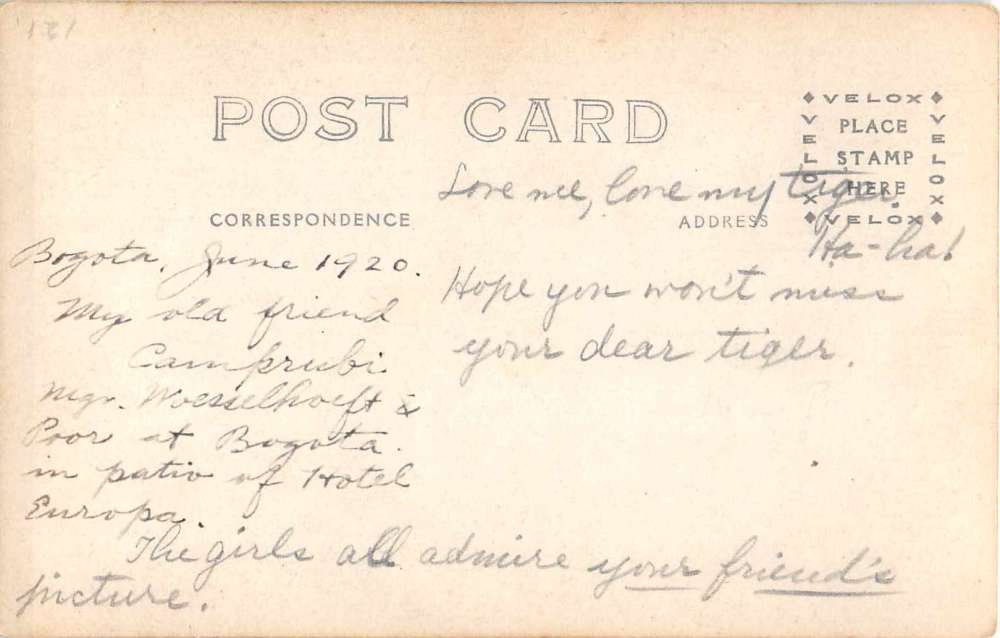 121
POST CARD
VELOX
VELOX
PLACE
STAMP
HERE
VELOX
VELOX
CORRESPONDENCE
ADDRESS
Bogota, June 1920.
My old friend
Camprubi
Mgr. Woesselhoeft &
Poor at Bogota.
in patio of Hotel
Europa.
Love me, love my tiger.
Ha-ha!
Hope you won't miss
your dear tiger.
The girls all admire your friend's
picture.